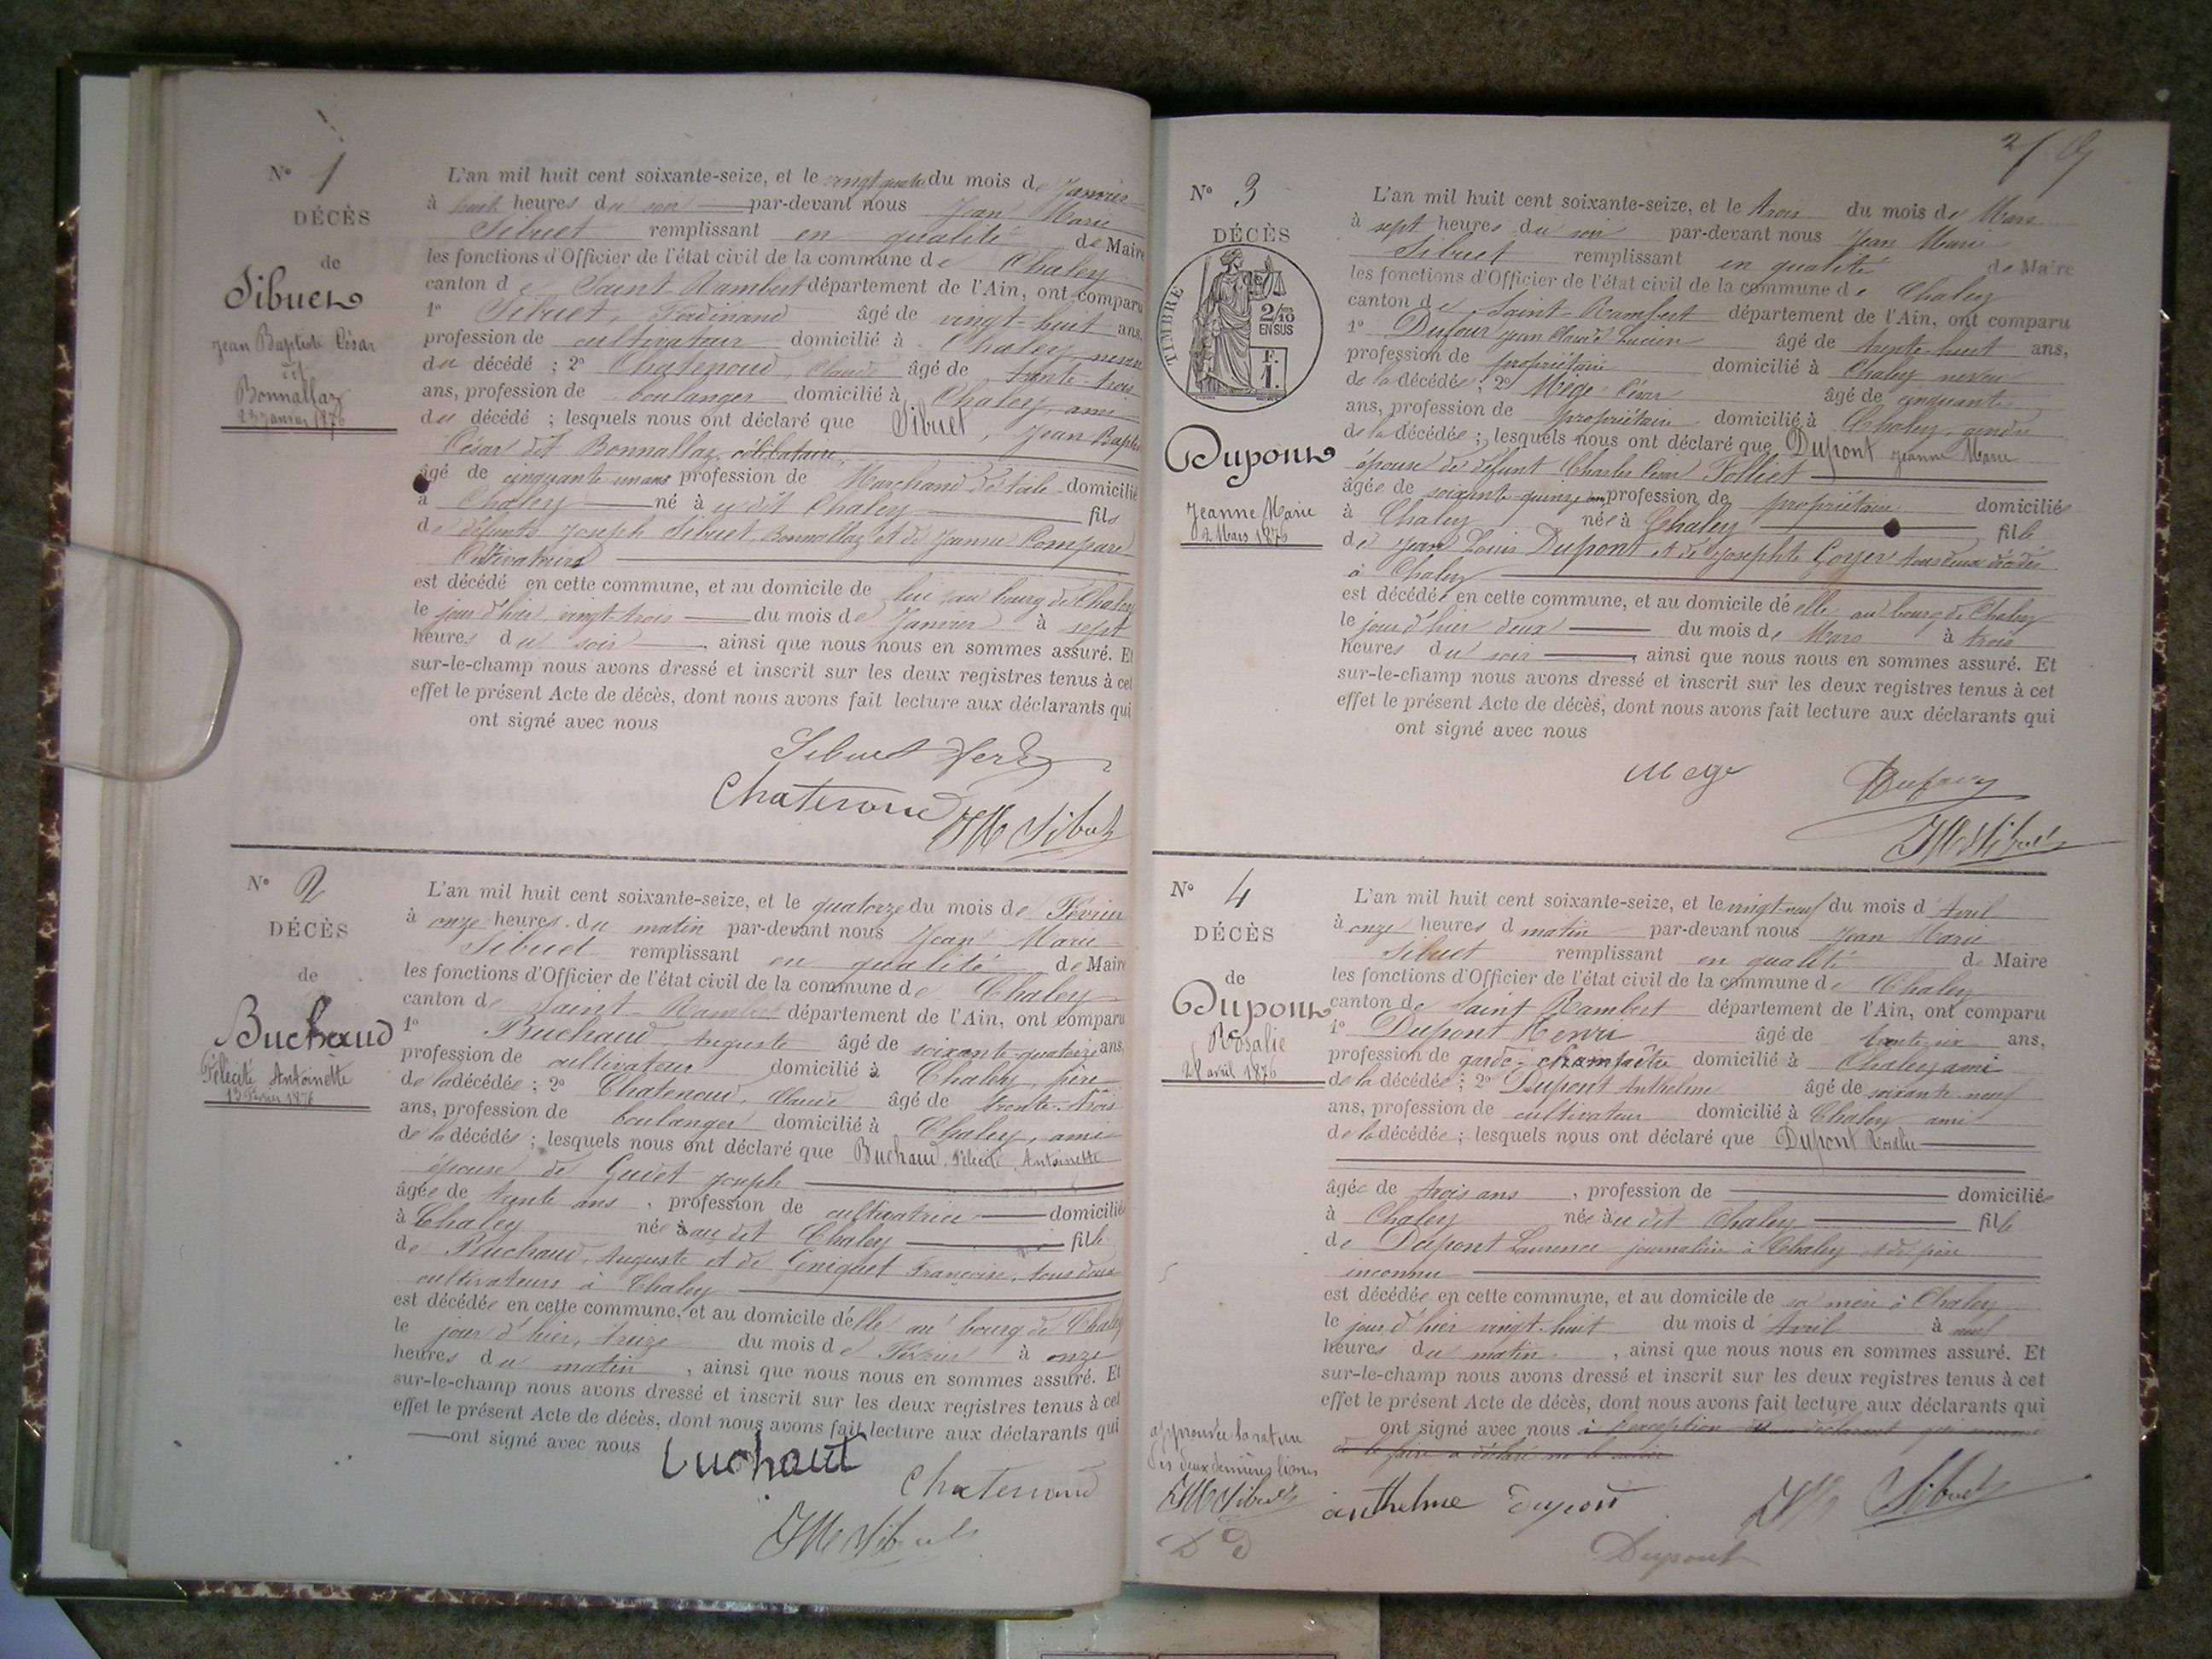 N° 1
DÉCÈS
de
Sibuet
Jean Baptiste César
dit
Bonnallaz
23 janvier 1876
L'an mil huit cent soixante-seize, et le vingt quatre du mois de Janvier
à huit heures du soir par-devant nous Jean Marie
Sibuet remplissant en qualité de Maire
les fonctions d'Officier de l'état civil de la commune de Chaley
canton de Saint Rambert département de l'Ain, ont comparu
1° Sibuet, Ferdinand âgé de vingt-huit ans,
profession de cultivateur domicilié à Chaley, neveu
du décédé ; 2° Chatenoud, Claude âgé de trente-trois
ans, profession de boulanger domicilié à Chaley, ami
du décédé ; lesquels nous ont déclaré que Sibuet, Jean Baptiste
César dit Bonnallaz, célibataire,
âgé de cinquante un ans profession de Marchand de toile domicilié
à Chaley né à u dit Chaley fils
de défunts Joseph Sibuet Bonnallaz et de Jeanne Compare
Cultivateurs
est décédé en cette commune, et au domicile de lui au bourg de Chaley
le jour d'hier, vingt-trois du mois de Janvier à sept
heures du soir, ainsi que nous nous en sommes assuré. Et
sur-le-champ nous avons dressé et inscrit sur les deux registres tenus à cet
effet le présent Acte de décès, dont nous avons fait lecture aux déclarants qui
ont signé avec nous
Sibuet Ferd
Chatenoud
JM Sibuet
N° 2
DÉCÈS
de
Buchaud
Félicité Antoinette
13 Février 1876
L'an mil huit cent soixante-seize, et le quatorze du mois de Février
à onze heures du matin par-devant nous Jean Marie
Sibuet remplissant en qualité de Maire
les fonctions d'Officier de l'état civil de la commune de Chaley
canton de Saint-Rambert département de l'Ain, ont comparu
1° Buchaud, Auguste âgé de soixante-quatorze ans,
profession de cultivateur domicilié à Chaley, père
de la décédée ; 2° Chatenoud, Claude âgé de trente-trois
ans, profession de boulanger domicilié à Chaley, ami
de la décédée ; lesquels nous ont déclaré que Buchaud, Félicité, Antoinette
épouse de Guidet Joseph
âgée de trente ans, profession de cultivatrice domiciliée
à Chaley née à au dit Chaley fille
de Buchaud, Auguste et de Françoise, tous deux
cultivateurs à Chaley
est décédée en cette commune, et au domicile d'elle au bourg de Chaley
le jour d'hier, treize du mois de Février à onze
heures du matin, ainsi que nous nous en sommes assuré. Et
sur-le-champ nous avons dressé et inscrit sur les deux registres tenus à cet
effet le présent Acte de décès, dont nous avons fait lecture aux déclarants qui
ont signé avec nous
Buchaut
Chatenoud
JM Sibuet
2
N° 3
DÉCÈS
TIMBRE
2/10
EN SUS
F.
1.
Dupont
Jeanne Marie
2 Mars 1876
L'an mil huit cent soixante-seize, et le trois du mois de Mars
à sept heures du soir par-devant nous Jean Marie
Sibuet remplissant en qualité de Maire
les fonctions d'Officier de l'état civil de la commune de Chaley
canton de Saint-Rambert département de l'Ain, ont comparu
1° Dufour Jean Claude Lucien âgé de trente-huit ans,
profession de propriétaire domicilié à Chaley neveu
de la décédée ; 2° Mège César âgé de cinquante
ans, profession de propriétaire domicilié à Chaley, gendre
de la décédée ; lesquels nous ont déclaré que Dupont Jeanne Marie
épouse de défunt Charles César Folliet
âgée de soixante-quinze ans profession de propriétaire domiciliée
à Chaley née à Chaley fille
de Jean Louis Dupont et de Josephte Goyer tous deux décédés
à Chaley
est décédée en cette commune, et au domicile de elle au bourg de Chaley
le jour d'hier deux du mois de Mars à trois
heures du soir, ainsi que nous nous en sommes assuré. Et
sur-le-champ nous avons dressé et inscrit sur les deux registres tenus à cet
effet le présent Acte de décès, dont nous avons fait lecture aux déclarants qui
ont signé avec nous
Mege Dufour
JM Sibuet
N° 4
DÉCÈS
de
Dupont
Rosalie
28 avril 1876
L'an mil huit cent soixante-seize, et le vingt-neuf du mois d'Avril
à onze heures d matin par-devant nous Jean Marie
Sibuet remplissant en qualité de Maire
les fonctions d'Officier de l'état civil de la commune de Chaley
canton de Saint Rambert département de l'Ain, ont comparu
1° Dupont Henri âgé de trente-six ans,
profession de garde-champêtre domicilié à Chaley ami
de la décédée ; 2° Dupont Anthelme âgé de soixante-neuf
ans, profession de cultivateur domicilié à Chaley ami
de la décédée ; lesquels nous ont déclaré que Dupont Rosalie
âgée de trois ans, profession de domiciliée
à Chaley née à u dit Chaley fille
de Dupont Laurence journalière à Chaley et de père
inconnu
est décédée en cette commune, et au domicile de sa mère à Chaley
le jour d'hier vingt-huit du mois d'Avril à neuf
heures du matin, ainsi que nous nous en sommes assuré. Et
sur-le-champ nous avons dressé et inscrit sur les deux registres tenus à cet
effet le présent Acte de décès, dont nous avons fait lecture aux déclarants qui
ont signé avec nous à l'exception du déclarant qui
de le faire a déclaré ne le savoir
approuvée la rature
des deux dernières lignes
JM Sibuet
D D
anthelme Dupont
JM Sibuet
Dupont